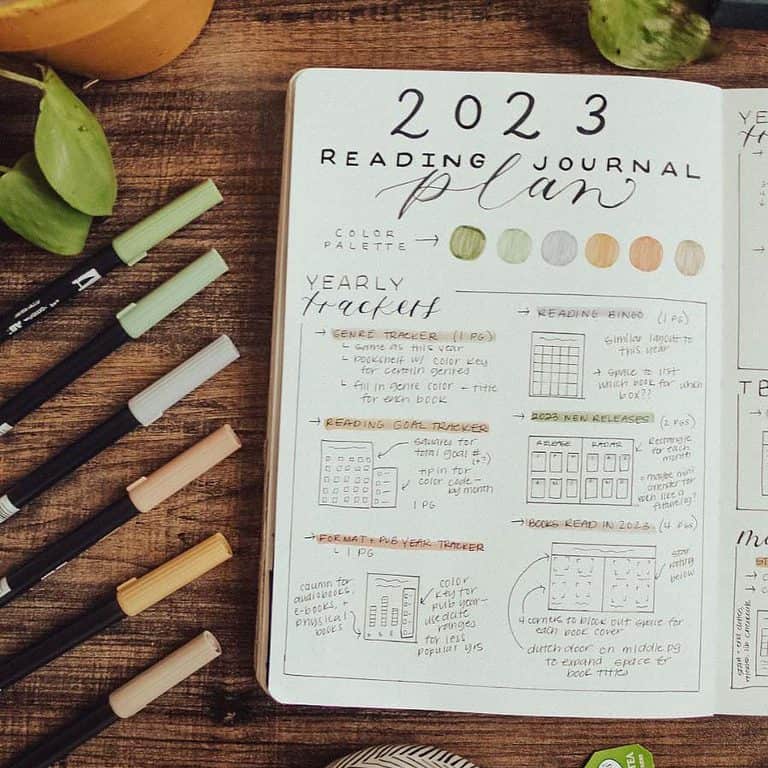 2023
READING JOURNAL
plan
COLOR
PALETTE →
YEARLY
trackers
→ GENRE TRACKER (1 PG)
↳ same as this year
↳ bookshelf w/ color key
for certain genres
↳ fill in genre color + title
for each book
→ READING GOAL TRACKER
squares for
total goal #
(+?)
tip in for
color code -
by month
1 PG
→ FORMAT + PUB YEAR TRACKER
↳ 1 PG
column for
audiobooks,
e-books, +
physical
books
color
key for
pub year -
use date
ranges
for less
popular yrs
→ READING BINGO (1 PG)
similar layout to
this year
→ space to list
which book for which
box??
→ 2023 NEW RELEASES (2 PGS)
RELEASE RADAR
Rectangle
for each
month
+ maybe mini
calendar for
each like a
future log?
→ BOOKS READ IN 2023 (4 PGS)
star
rating
below
4 corners to block out space for
each book cover
dutch door on middle pg
to expand space for
book titles
YE
TB